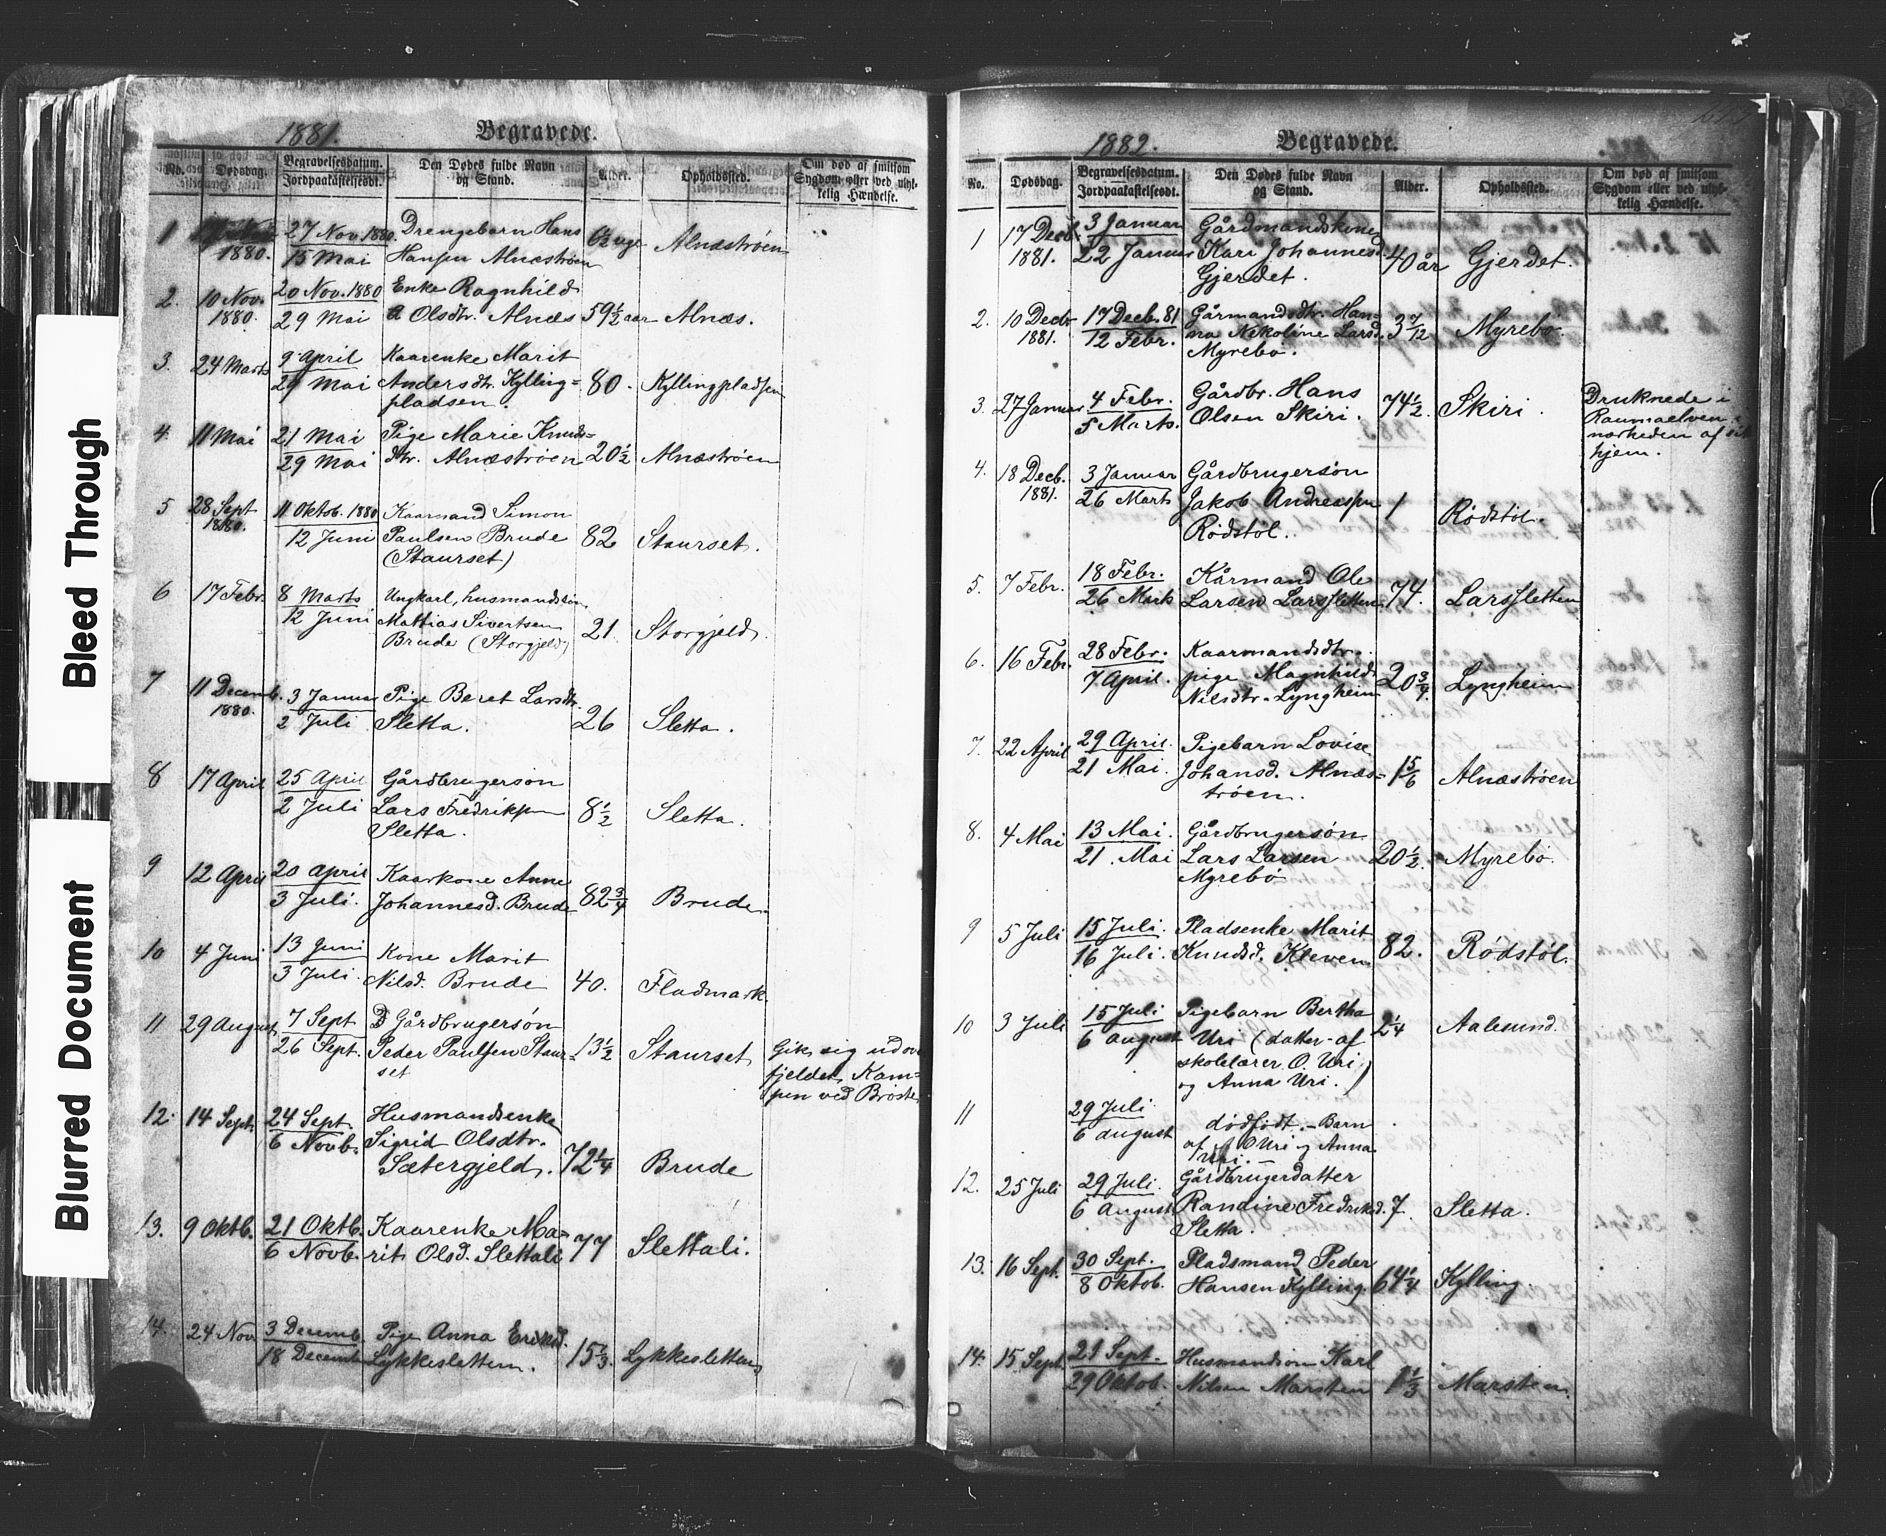 Bleed Through
Blurred Document
1881. Begravede.
No. Dødsdag. Begravelsesdatum. Jordpaakastelsesdt. Den Dødes fulde Navn og Stand. Alder. Opholdssted. Om død af smitsom Sygdom eller ved ulykkelig Hændelse.
1 27 Nov. 1880. Drengebarn Hans
1880. 15 Mai Hansen Alnæstrøen 6½ uge Alnæstrøen
2. 10 Nov. 20 Nov. 1880 Enke Ragnhild
1880. 29 Mai Olsdtr. Alnæs 59½ aar Alnæs.
3. 24 Marts 9 April Kaarenke Marit
29 Mai Andersdtr. Kylling= 80. Kyllingpladsen
pladsen.
4. 11 Mai 21 Mai Pige Marie Knuds=
29 Mai dtr. Alnæstrøen 20½ Alnæstrøen
5 28 Sept 11 Oktob. 1880 Kaarmand Simon
1880. 12 Juni Paulsen Brude 82 Staurset.
(Staurset)
6 17 Febr. 8 Marts Ungkarl, husmandssøn
12 Juni Mattias Sivertsen 21. Storgjeld.
Brude (Storgjeld)
7 11 Decemb. 3 Januar Pige Beret Larsdtr.
1880. 2 Juli Sletta. 26 Sletta.
8 17 April 25 April Gårdbrugersøn
2 Juli Lars Fredriksen 8½ Sletta.
Sletta.
9 12 April 20 April Kaarkone Anne
3 Juli. Johannesd. Brude 82¾ Brude
10 4 Juni 13 Juni Kone Marit
3 Juli. Nilsd. Brude 40. Fladmark
11 29 August 7 Sept Gårdbrugersøn
26 Sept. Peder Paulsen Staur= 13½ Staurset Gik sig udover
set fjeldet, Kam=
pen ved Brøste
12. 14 Sept. 24 Sept. Husmandsenke
6 Novb. Sigrid Olsdtr. 72¼ Brude
Sætergjeld.
13. 9 Oktb. 21 Oktb. Kaarenke Ma=
6 Novb. rit Olsd. Slettali 77 Slettali.
14. 24 Nov 3 Decemb. Pige Anna Eriksd.
18 Decemb Lykkesletten. 15⅓. Lykkesletten
1882. Begravede.
No. Dødsdag. Begravelsesdatum. Jordpaakastelsesdt. Den Dødes fulde Navn og Stand. Alder. Opholdssted. Om død af smitsom Sygdom eller ved ulykkelig Hændelse.
1 17 Decb. 3 Januar Gårdmandskone
1881. 22 Januar Kari Johannesd. 40 år Gjerdet.
Gjerdet.
2. 10 Decbr 17 Decb. 81 Gårmandsdtr. Han=
1881. 12 Febr. na Nekoline Larsd. 3 7/12 Myrebø
Myrebø.
3. 27 Januar 4 Febr. Gårdbr. Hans
5 Marts. Olsen Skiri. 74½. Skiri. Druknede i
Raumaelven i
nærheden af sit
hjem.
4. 18 Decb. 3 Januar Gårdbrugersøn
1881. 26 Marts Jakob Andreassen 1 Rødstøl.
Rødstøl.
5. 7 Febr. 18 Febr. Kårmand Ole
26 Marts Larsen Larssletten 74. Larssletten
6. 16 Febr. 28 Febr. Kaarmandsdtr.
7 April. pige Magnhild 20¾ Lyngheim
Nilsdtr. Lyngheim
7. 22 April 29 April. Pigebarn Lovise
21 Mai. Johansd. Alnæs= 1 5/6 Alnæstrøen
trøen.
8. 4 Mai 13 Mai. Gårdbrugersøn
21. Mai Lars Larsen 20½. Myrebø.
Myrebø
9 5 Juli 15 Juli. Pladsenke Marit
16 Juli. Knudsd. Kleven 82. Rødstøl.
10 3 Juli 15 Juli Pigebarn Bertha
6 august Uri (datter af 2¼ Aalesund.
skolelærer O. Uri
og Anna Uri.)
11 29 Juli dødfødt. Barn
6 august af O Uri og Anna
Uri.
12. 25 Juli 29 Juli. Gårdbrugerdatter
6 August Randine Fredriksd. 7. Sletta.
Sletta.
13. 16 Sept. 30 Sept. Pladsmand Peder
8 Oktob. Hansen Kylling. 64¼ Kylling
14. 15 Sept. 21 Sept. Husmandssøn Karl
29 Oktob. Nilsen Marsten 1⅓ Marsten.